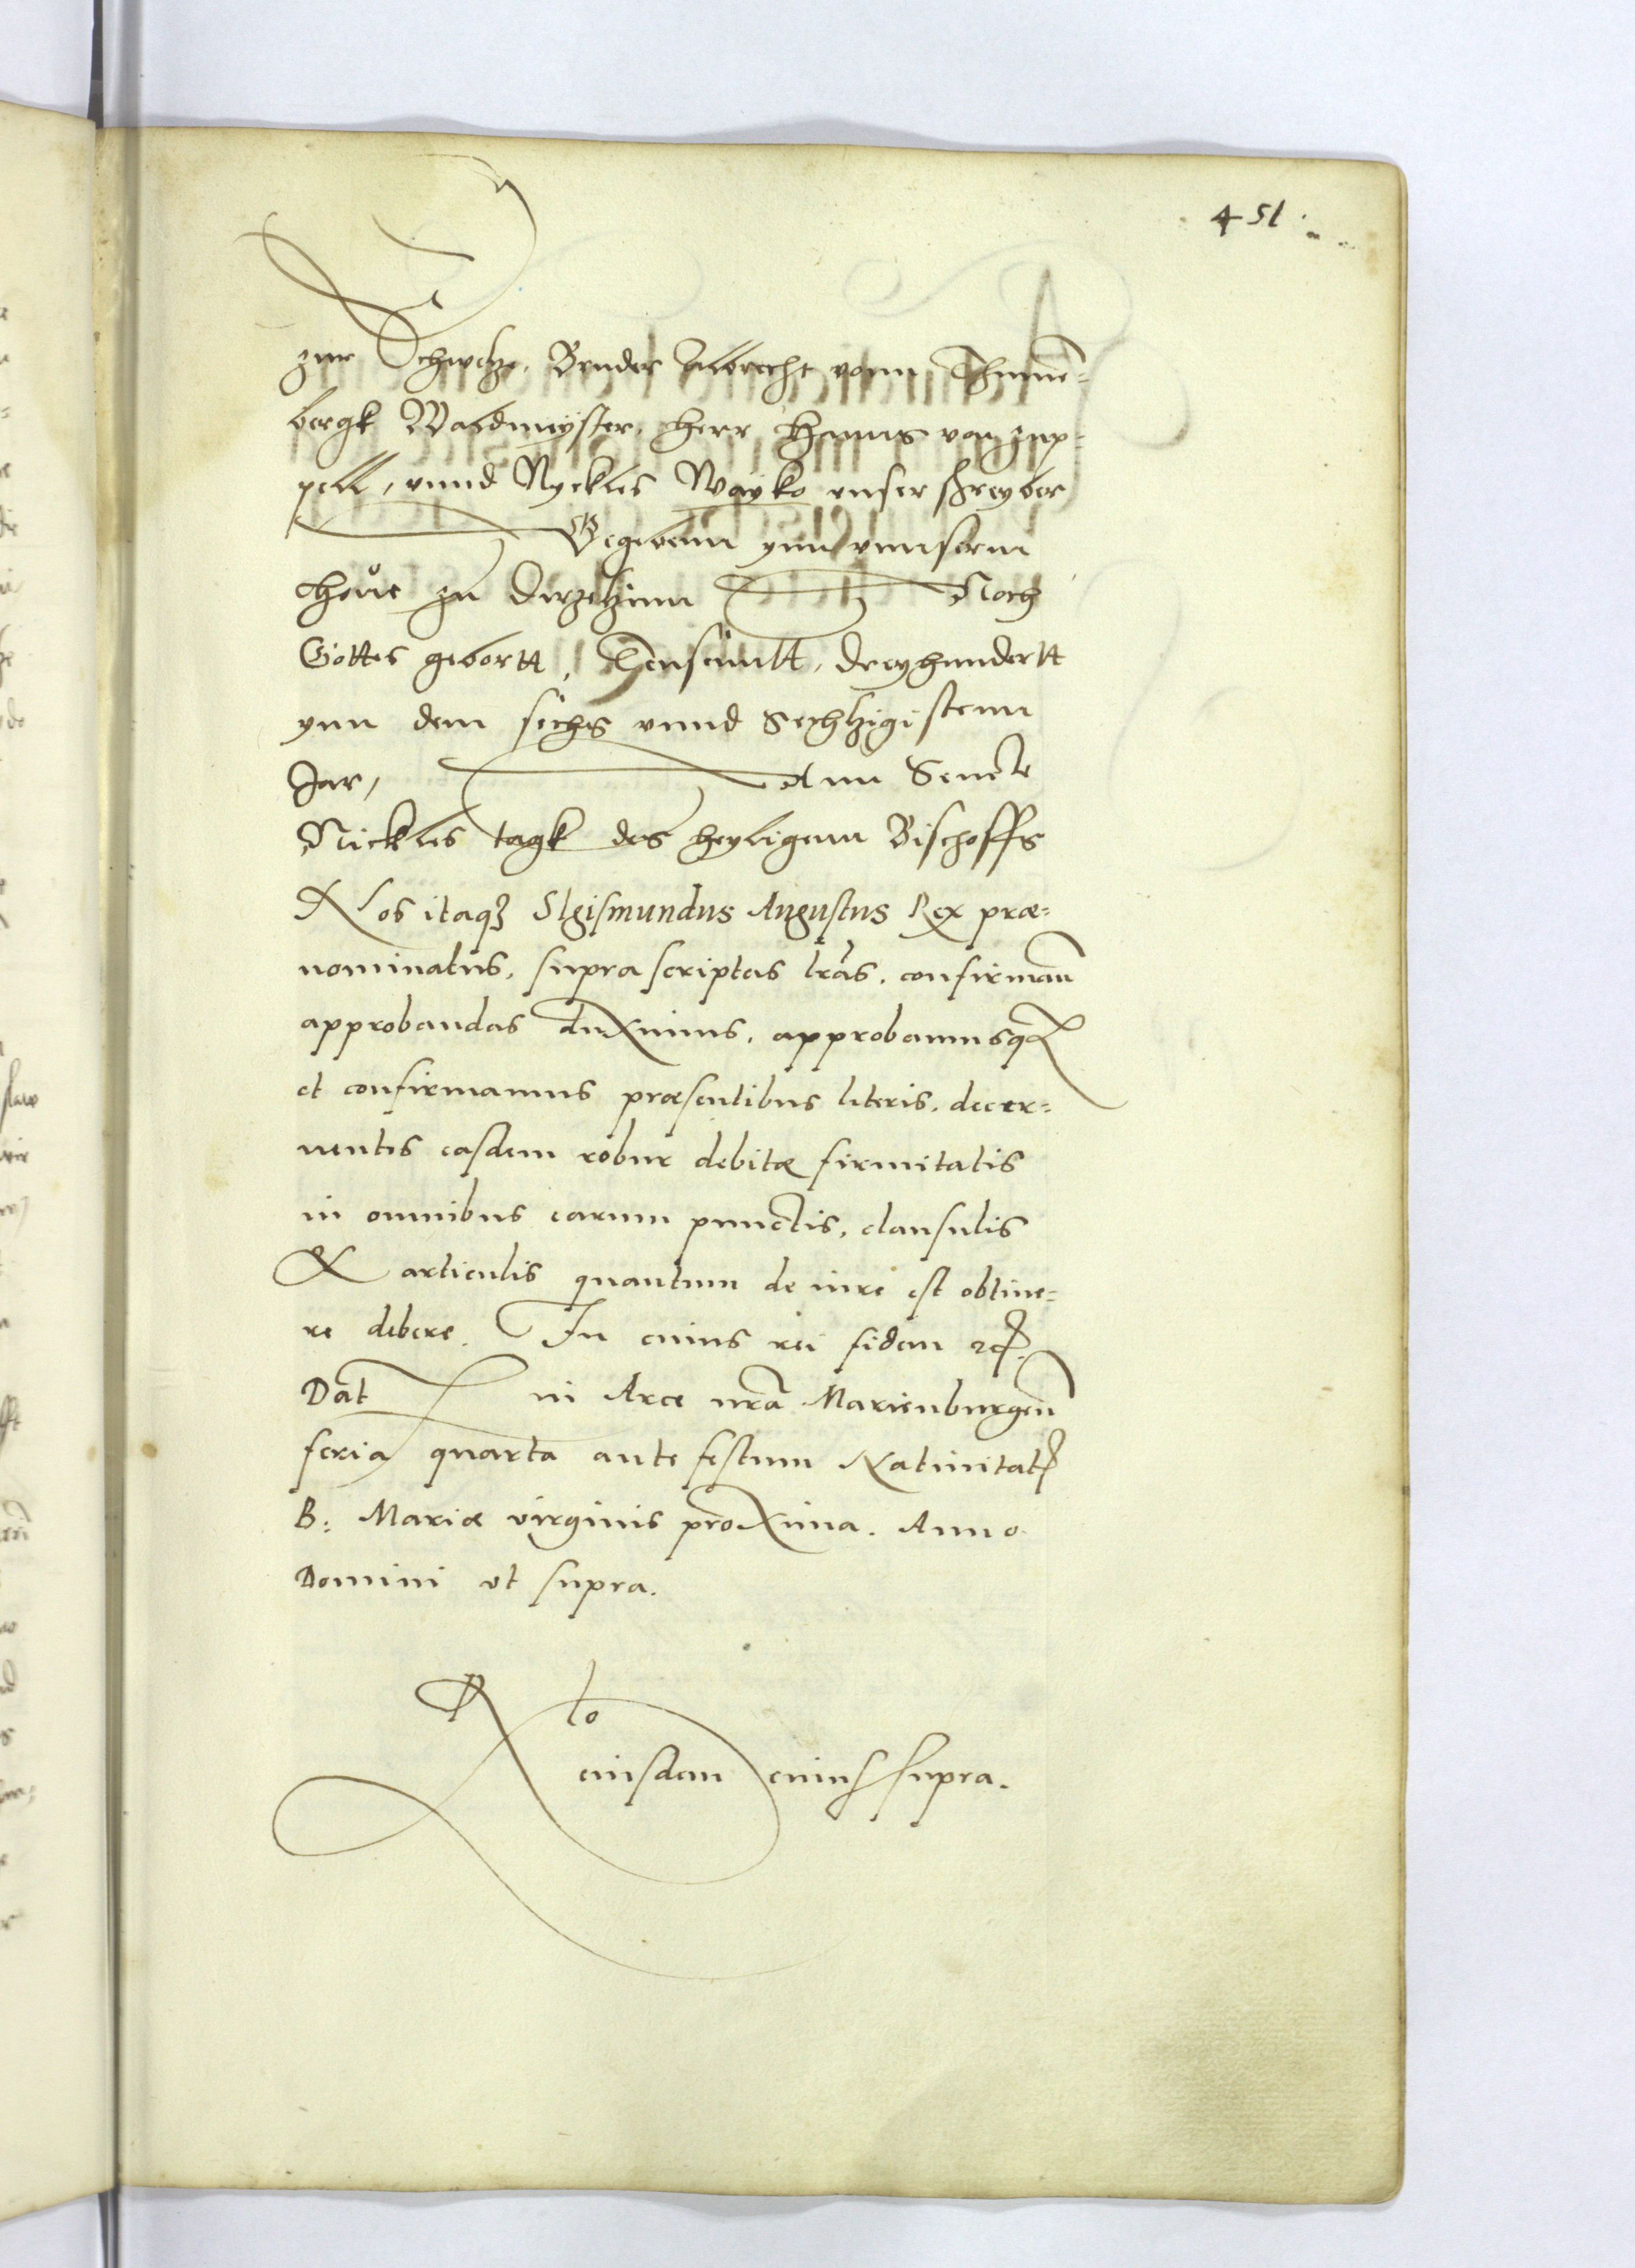 451
zur Schwetze, Bruder Albrecht vonn Thunne=
bergk Waldmeyster, herr Hanns von zup=
pell, vnnd Nyckles Wayko vnser schreyber
Gegebenn ynn vnnserm
hove zu Dirzchymn Noch
Gottes geburtt, Tausenntt, dreyhundertt
ynn dem sechs vnnd Sechtzigistenn
Jar, Ann Sencte
Nickles tagk des heyligenn Bischoffs
Nos itaq3 Sigismundus Augustus Rex præ=
nominatus, supra scriptas lrãs, confirman̄
approbandas duximus, approbamusq3
et confirmamus præsentibus literis, decer=
nentes easdem robur debitæ firmitatis
in omnibus earum punctis, clausulis
& articulis quantum de iure est obtine=
re debere. In cuius rei fidem etc.
Dat in Arce nrã Marienburgen̄
feria quarta ante festum Natiuitat
B: Mariæ virginis proxima. Anno
Domini vt supra.
Rlo
eiusdem cuius supra.